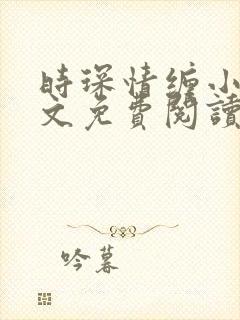 時琛情缠小
文免費閱讀
吟暮